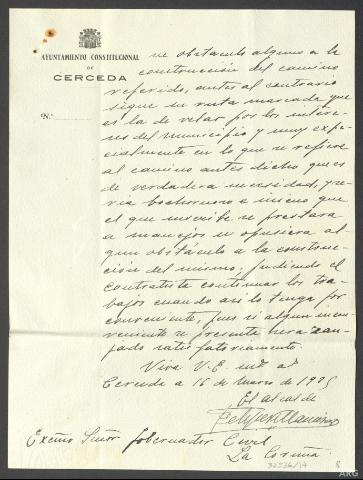 AYUNTAMIENTO CONSTITUCIONAL
DE
CERCEDA
N.º
ne obstaculo alguno a la
construcción del camino
referido, antes al contrario
sigue su ruta marcada que
es la de velar por los intere-
ses del municipio y muy espe-
cialmente en lo que se refiere
al camino antes dicho que es
de verdadera necesidad, y se-
ria bochornoso e inicuo que
el que suscribe se prestara
a manejos u opusiera al-
gun obstáculo a la construc-
ción del mismo, pudiendo el
contratista continuar los tra-
bajos cuando asi lo tenga por
conveniente, pues si algun incon-
veniente se presenta sera zan-
jado satisfatoriamente.
Viva V. E. ms. as.
Cerceda a 16 de Marzo de 1935
El alcalde
Excmo Señor Gobernador Civil
La Coruña
32536/14
8
ARG